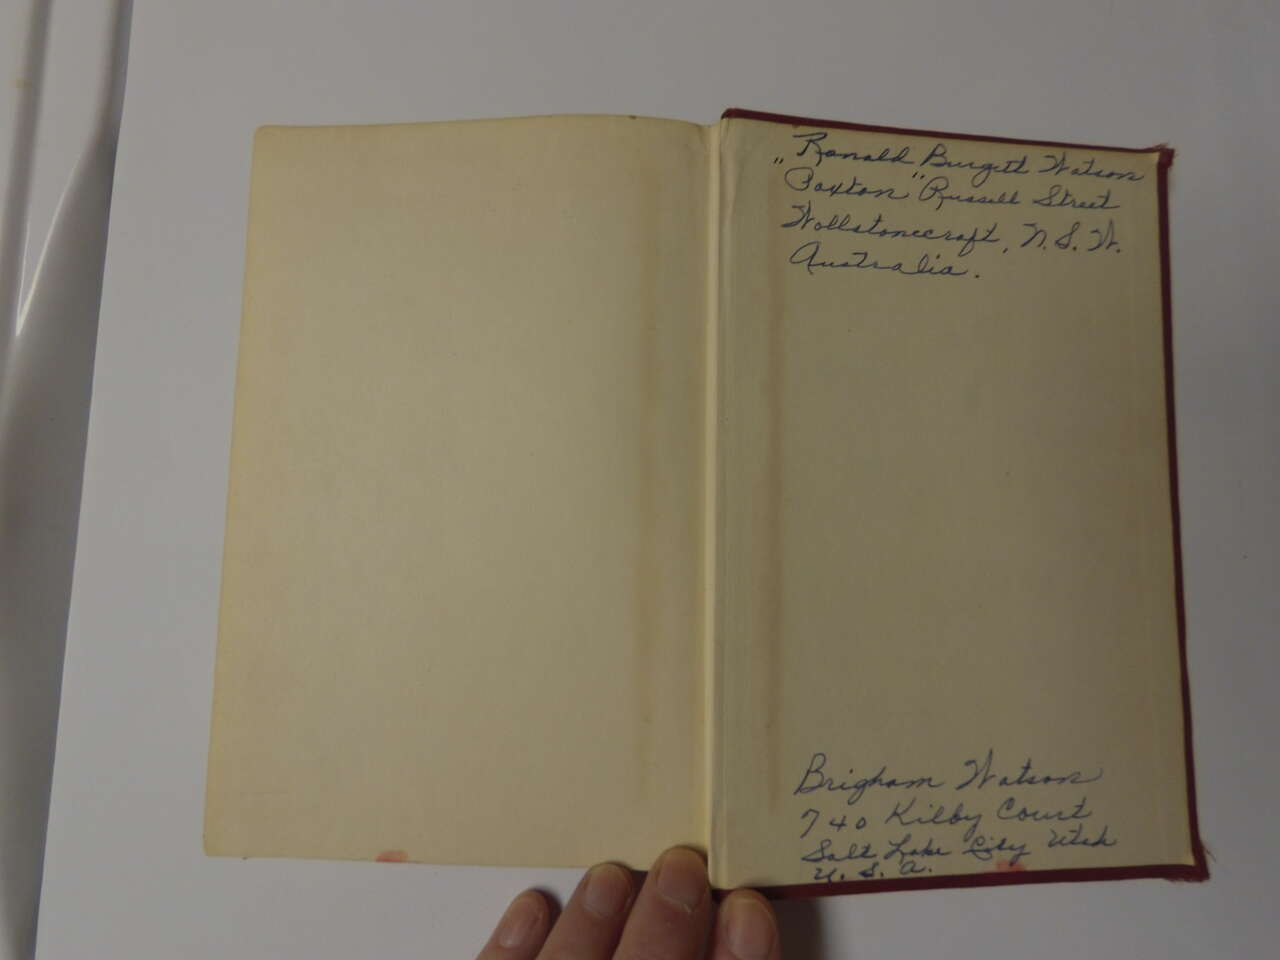 Ronald Burgett Watson
"Paxton" Russell Street
Wollstonecraft, N.S.W.
Australia.
Brigham Watson
740 Kilby Court
Salt Lake City Utah
U.S.A.